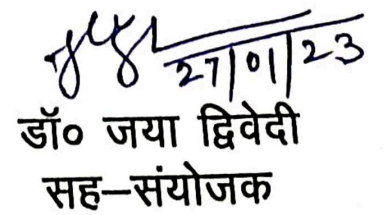 27/01/23
डॉ० जया द्विवेदी
सह–संयोजक